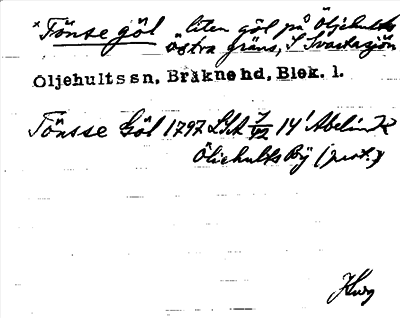 × Tönse göl liten göl på Öljehults
östra gräns, i Svartasjön
Öljehults sn, Bräkne hd, Blek. l.
Tönsse Göl 1797 LSA 7/VII 14' Abelin K
Öliehults By (prot.)